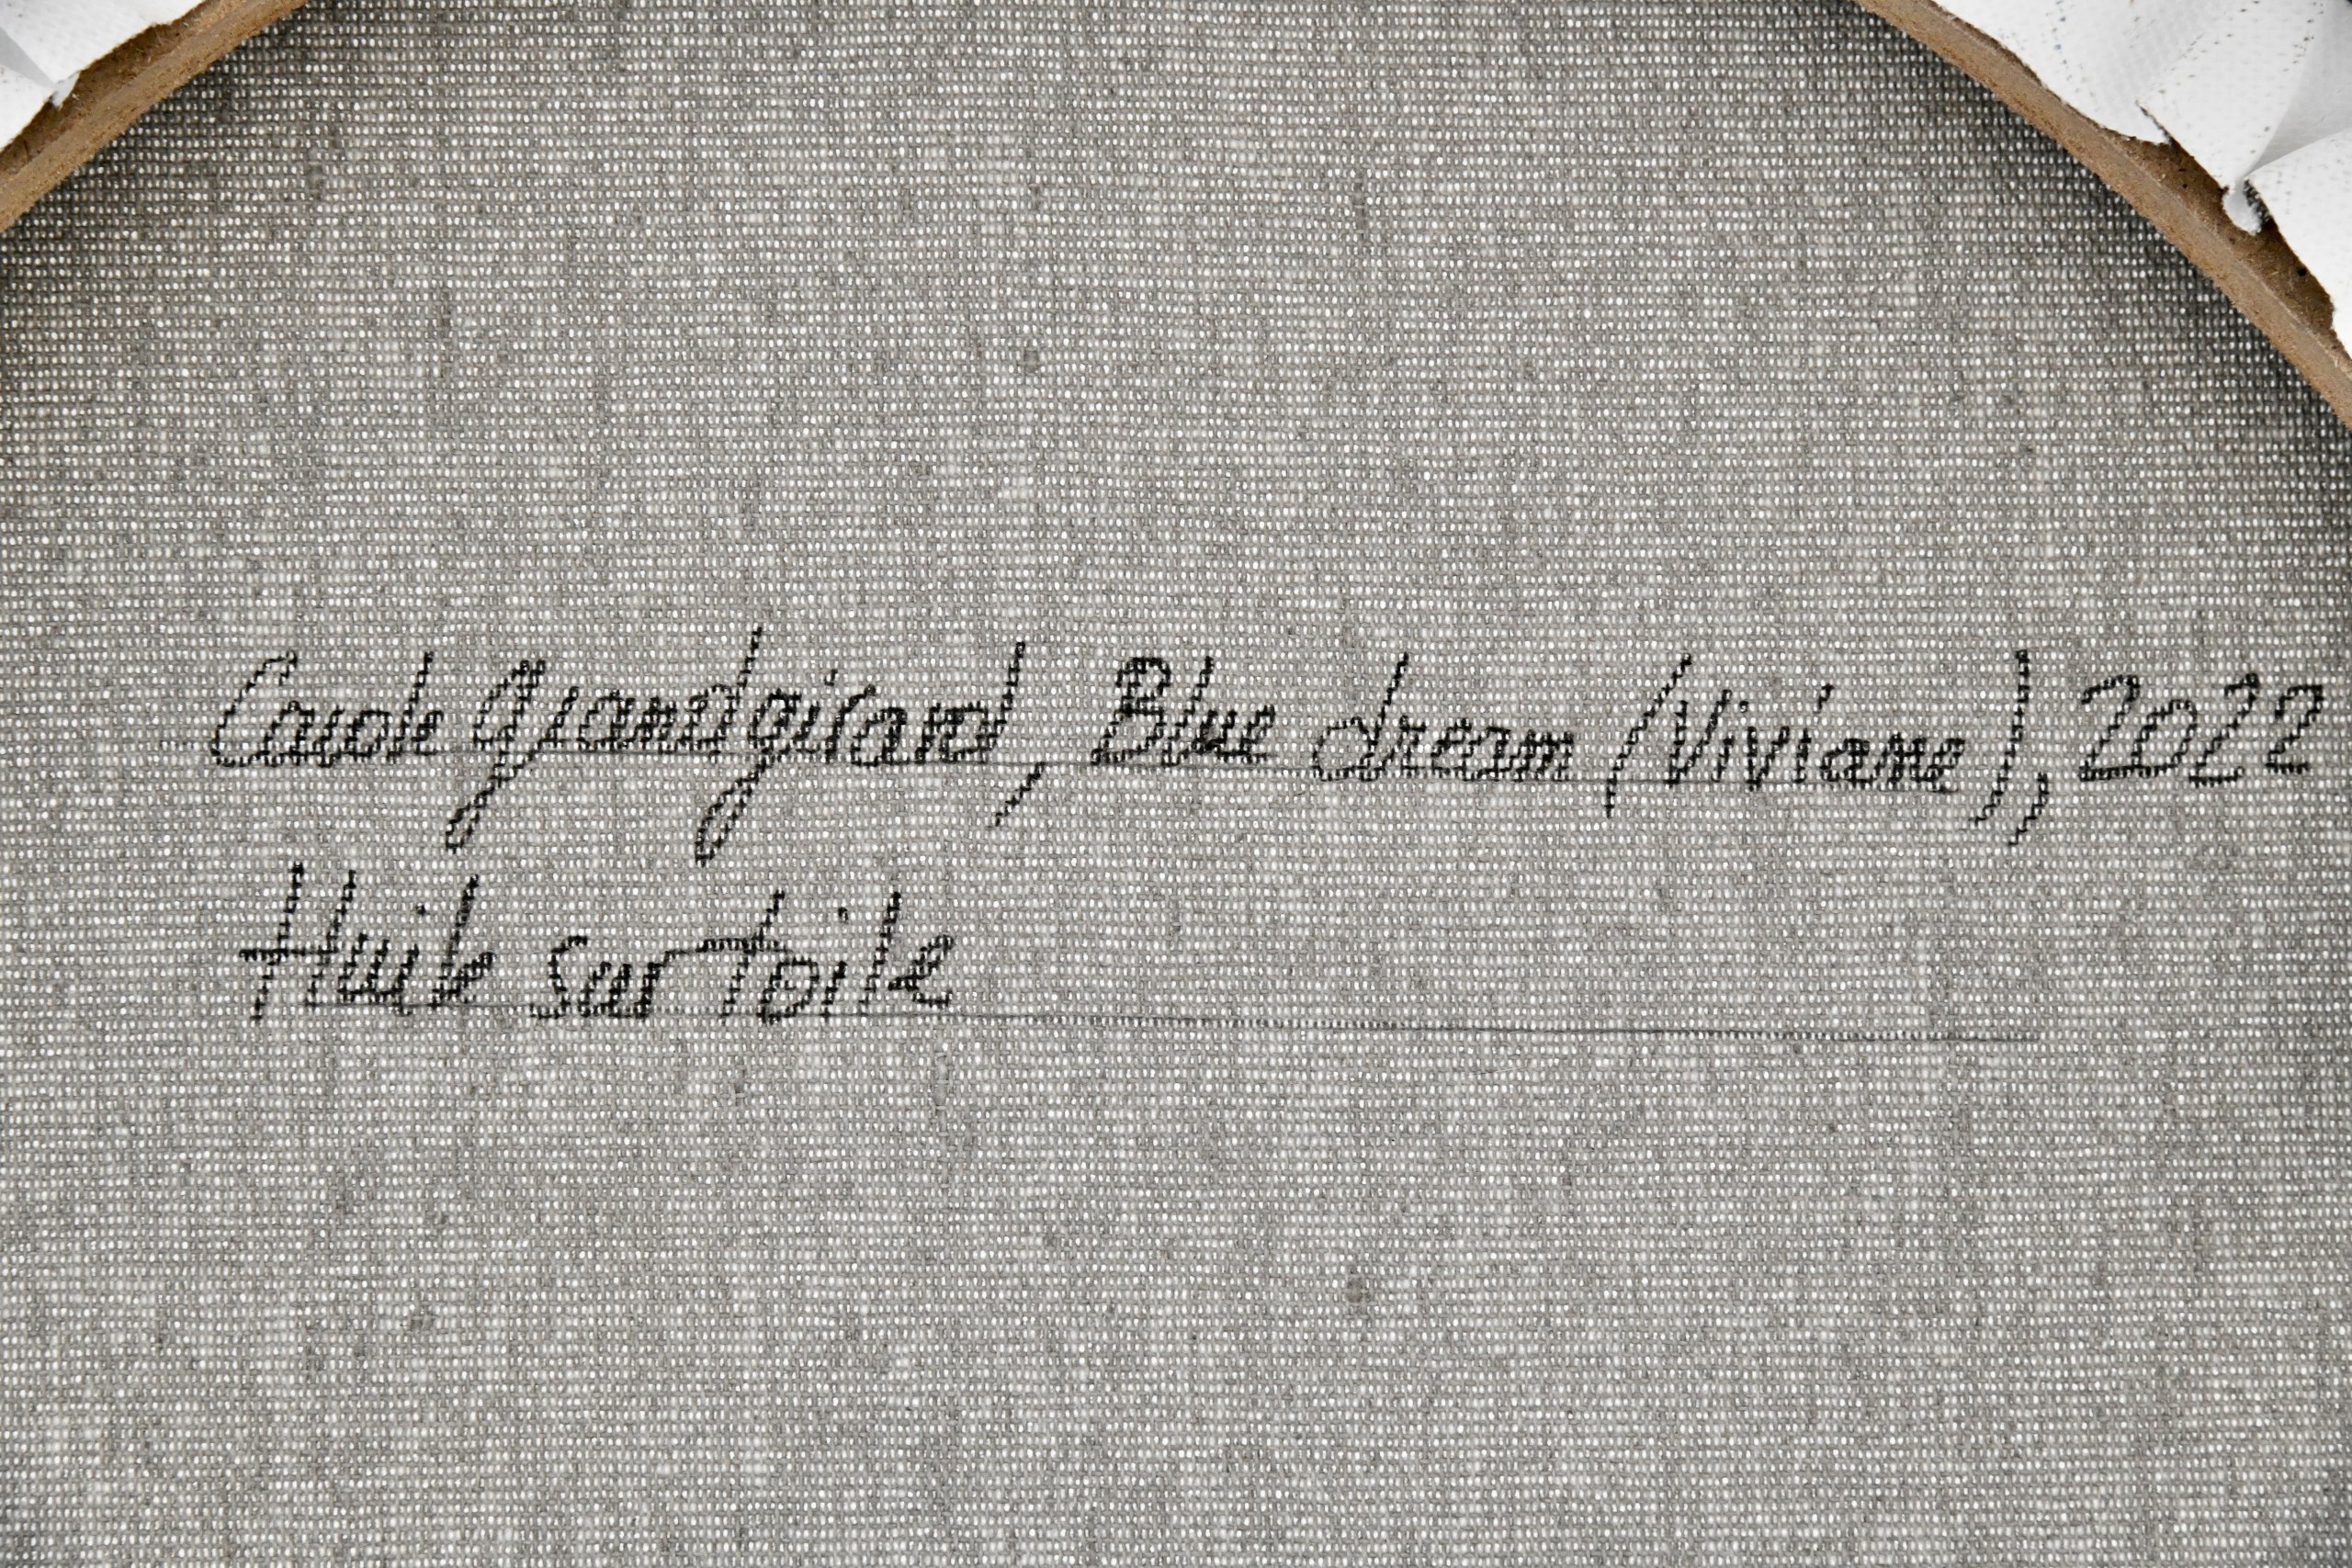 Carole grandgirard, Blue dream (Viviane), 2022
Huile sur toile